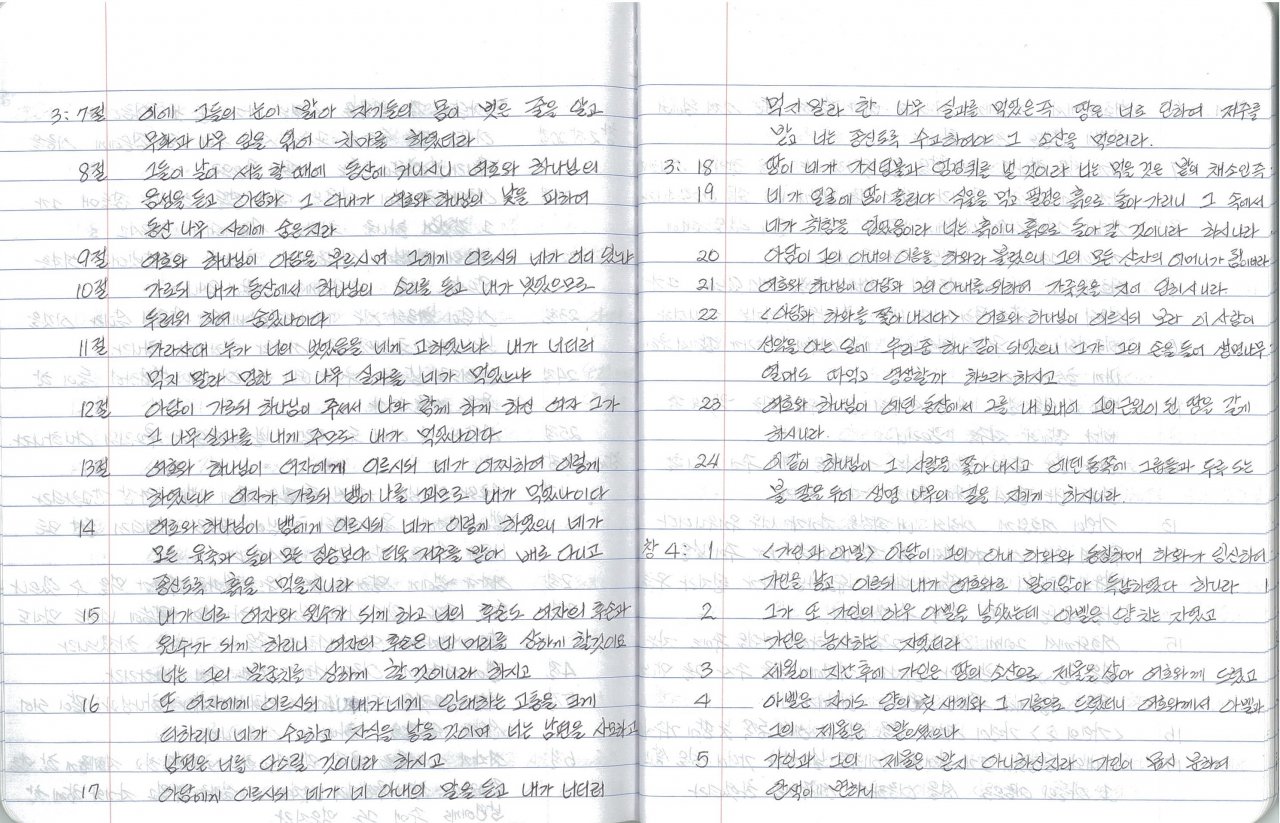 3: 7절 이에 그들의 눈이 밝아 자기들의 몸이 벗은 줄을 알고
무화과 나무 잎을 엮어 치마를 하였더라
8절 그들이 날이 서늘할 때에 동산에 거니시는 여호와 하나님의
음성을 듣고 아담과 그 아내가 여호와 하나님의 낯을 피하여
동산 나무 사이에 숨은지라
9절 여호와 하나님이 아담을 부르시며 그에게 이르시되 네가 어디 있느냐
10절 가로되 내가 동산에서 하나님의 소리를 듣고 내가 벗었으므로
두려워 하여 숨었나이다
11절 가라사대 누가 너의 벗었음을 네게 고하였느냐 내가 너더러
먹지 말라 명한 그 나무 실과를 네가 먹었느냐
12절 아담이 가로되 하나님이 주셔서 나와 함께 하게 하신 여자 그가
그 나무 실과를 내게 주므로 내가 먹었나이다
13절 여호와 하나님이 여자에게 이르시되 네가 어찌하여 이렇게
하였느냐 여자가 가로되 뱀이 나를 꾀므로 내가 먹었나이다
14 여호와 하나님이 뱀에게 이르시되 네가 이렇게 하였으니 네가
모든 육축과 들의 모든 짐승보다 더욱 저주를 받아 배로 다니고
종신토록 흙을 먹을지니라
15 내가 너로 여자와 원수가 되게 하고 너의 후손도 여자의 후손과
원수가 되게 하리니 여자의 후손은 네 머리를 상하게 할것이요
너는 그의 발꿈치를 상하게 할 것이니라 하시고
16 또 여자에게 이르시되 내가 네게 잉태하는 고통을 크게
더하리니 네가 수고하고 자식을 낳을 것이며 너는 남편을 사모하고
남편은 너를 다스릴 것이니라 하시고
17 아담에게 이르시되 네가 네 아내의 말을 듣고 내가 너더러
먹지 말라 한 나무 실과를 먹었은즉 땅은 너로 인하여 저주를
받고 너는 종신토록 수고하여야 그 소산을 먹으리라.
3: 18 땅이 네게 가시덤불과 엉겅퀴를 낼 것이라 너는 먹을 것은 밭의 채소인즉
19 네가 얼굴에 땀이 흘려야 식물을 먹고 필경은 흙으로 돌아 가리니 그 속에서
네가 취함을 입었음이라 너는 흙이니 흙으로 돌아 갈 것이니라 하시니라
20 아담이 그의 아내의 이름을 하와라 불렀으니 그의 모든 산자의 어머니가 됨이더라
21 여호와 하나님이 아담과 그의 아내를 위하여 가죽옷을 지어 입히시니라.
22 <아담과 하와를 쫓아 내시다> 여호와 하나님이 이르시되 보라 이 사람이
선악을 아는 일에 우리 중 하나 같이 되었으니 그가 그의 손을 들어 생명나무
열매도 따먹고 영생할까 하노라 하시고
23 여호와 하나님이 에덴 동산에서 그를 내 보내어 그의 근원이 된 땅을 갈게
하시니라.
24 이같이 하나님이 그 사람을 쫓아 내시고 에덴 동쪽에 그룹들과 두루 도는
불 칼을 두어 생명 나무의 길을 지키게 하시니라.
창 4: 1 <가인과 아벨> 아담이 그의 아내 하와와 동침하매 하와가 임신하여
가인을 낳고 이르되 내가 여호와로 말미암아 득남하였다 하니라
2 그가 또 가인의 아우 아벨을 낳았는데 아벨은 양 치는 자였고
가인은 농사하는 자였더라
3 세월이 지난 후에 가인은 땅의 소산으로 제물을 삼아 여호와께 드렸고
4 아벨은 자기도 양의 첫 새끼와 그 기름으로 드렸더니 여호와께서 아벨과
그의 제물은 받으셨으나
5 가인과 그의 제물은 받지 아니하신지라 가인이 몹시 분하여
안색이 변하니